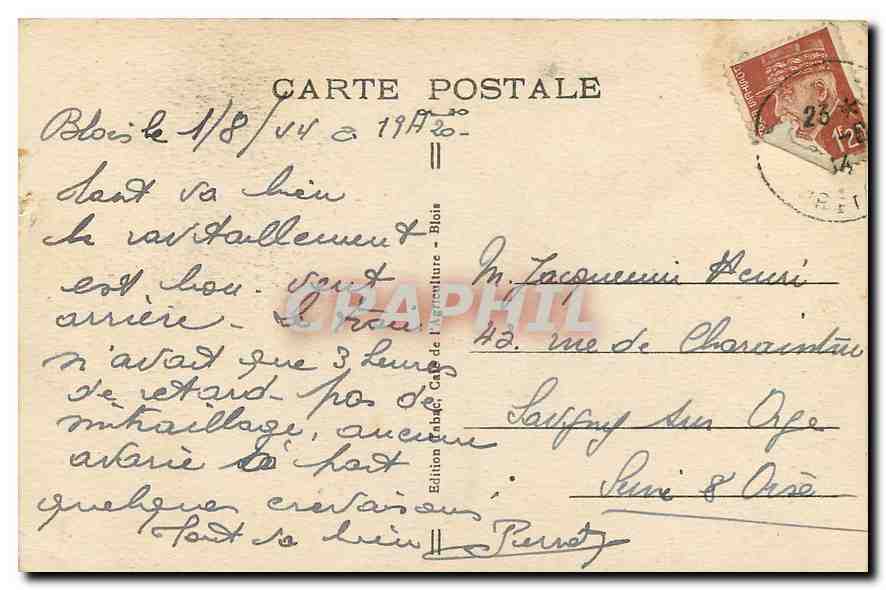 CARTE POSTALE
Blois le 1/8/44 a 19H20
Tout va bien
le ravitaillement
est bon. vent
arrière - le train
n'avait que 3 heures
de retard - pas de
mitraillage, aucune
avarie à part
quelques crevaisons
Tout va bien
Edition Tabac, Café de l'Agriculture - Blois
M. Jacquemin Henri
43. rue de Charaintru
Savigny sur Orge
Seine & Oise
1F20
23 *
CRAPHIL